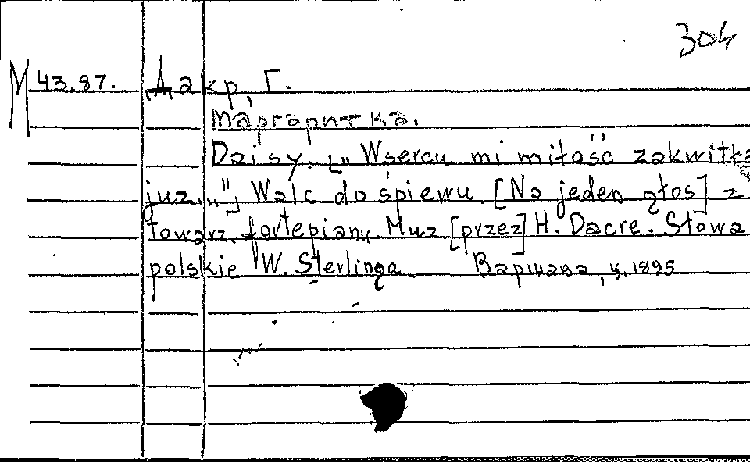 304
M 43.87. Дакр, Г.
Маргаритка.
Daisy. [„Wsercu mi miłość zakwitła
juz..."] Walc do śpiewu. [Na jeden głos] z
towarz. fortepianu Muz [przez] H. Dacre. Słowa
polskie W. Sterlinga Варшава, ц. 1895